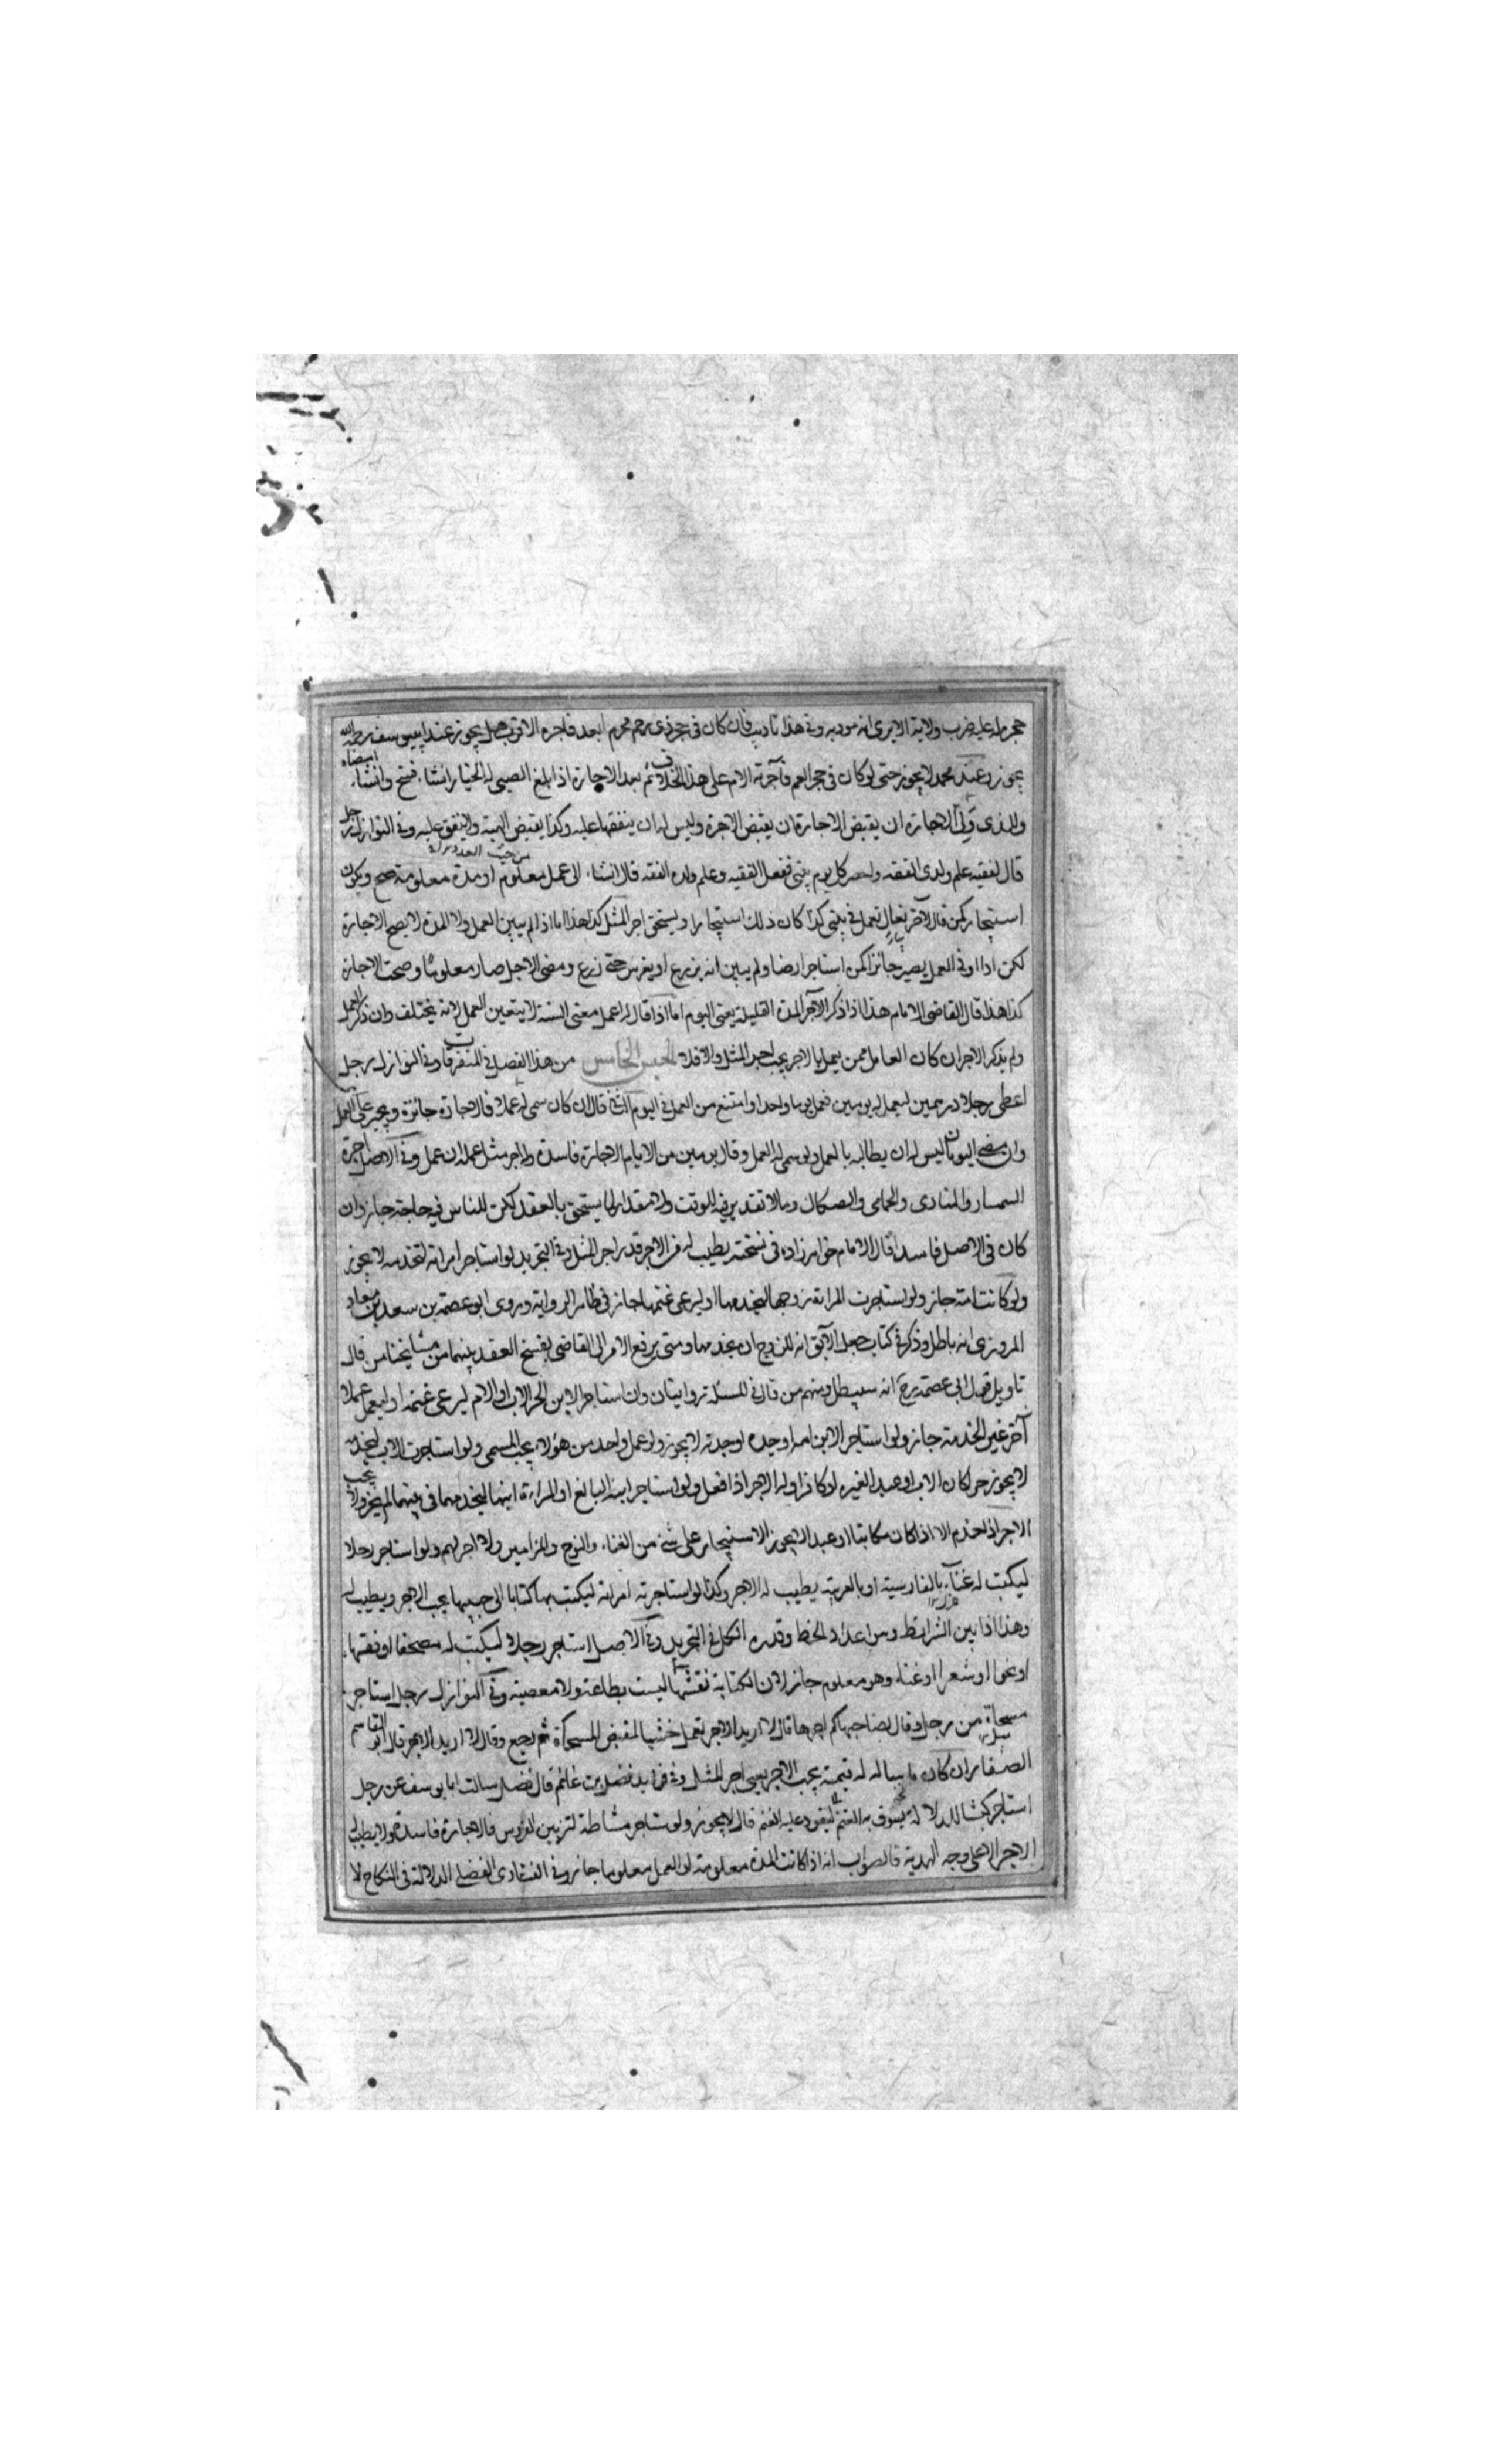 حجره له عليه ضرب ولاية الا يرى انه مودبه وفي هذا تاديب فان كان في حجر ذي رحم محرم ابعد فاجره الاقرب هل يجوز عند ابي يوسف رحمه الله
يجوز وعند محمد لا يجوز حتى لو كان في حجر العم فآجرته الام على هذا الخلاف ثم بعد الاجارة اذا بلغ الصبي له الخيار ان شاء فسخ وان شاء امضاه
والذي ولي الاجارة ان يقبض الاجارة ان يقبض الاجرة وليس له ان ينفقها عليه وكذا يقبض الهبة ولا ينفق عليه وفي النوازل رجل
قال لفقيه علم ولدي الفقه واحضر كل يوم بيتي ففعل الفقيه وعلم ولده الفقه قال ان شاء الى عمل معلوم او مدة معلومة صح ويكون
استيجارا كمن قال لآخر تعال تعمل في بيتي كذا كان ذلك استيجارا ويستحق اجر المثل كذا هذا اما اذا لم يبين العمل ولا المدة لا يصح الاجارة
لكن اذا اوفى العمل يصير جائزا كمن استاجر ارضا ولم يبين انه يزرع او يغرس حتى زرع ومضى الاجل صار معلوما وصحت الاجارة
كذا هذا قال القاضي الامام هذا اذا ذكر الآجر المدة القليلة يعني اليوم اما اذا قال اعمل معي السنة لا يتعين العمل لانه يختلف وان ذكر العمل
ولم يذكر الاجر ان كان العامل ممن يعمل بالاجر يجب اجر المثل والا فلا الجنس الخامس من هذا الفصل في المتفرقات وفي النوازل رجل
اعطى رجلا درهمين ليعمل له يومين فعمل يوما واحدا وامتنع من العمل في اليوم الثاني قال ان كان سمى له عملا فالاجارة جائزة ويجبر على العمل
وان مضى اليومان ليس له ان يطالبه بالعمل ولو سمى له العمل وقال يومين من الايام الاجارة فاسدة وله اجر مثل عمله ان عمل وفي الاصل اجرة
السمسار والمنادي والحمامي والصكاك وما لا تقدير فيه للوقت ولا مقدار لما يستحق بالعقد لكن للناس فيه حاجة جاز وان
كان في الاصل فاسدا قال الامام خواهر زاده في نسخته يطيب له من الاجر قدر اجر المثل وفي التجريد لو استاجر امراته لتخدمه لا يجوز
ولو كانت امة جاز ولو استاجرت المراة زوجها ليخدمها او ليرعى غنمها جاز في ظاهر الرواية وروى ابو عصمة بن سعد بن معاذ
المروزي انه باطل وذكر في كتاب جعل الآبق انه للزوج ان يخدمها ومتى يرفع الامر الى القاضي يفسخ العقد بينهما من مشايخنا من قال
تاويل قول ابي عصمة رح انه سيبطل ومنهم من قال في المسئلة روايتان وان استاجر الابن الحر الاب او الام ليرعى غنمه او ليعمل عملا
آخر غير الخدمة جاز ولو استاجر الابن امه او جده او جدته لا يجوز ولو عمل واحد من هؤلاء يجب المسمى ولو استاجرت الاب ليخدمه
لا يجوز حر كان الاب او عبد الغيره او كافرا وله الاجر اذا فعل ولو استاجر ابنه البالغ او المراءة ابنها ليخدمهما في بيتهما لم يجز ولا يجب
الاجر اذا خدم الا اذا كان مكاتبا او عبدا لا يجوز الاستيجار على شئ من الغناء والنوح والمزامير ولا اجر لهم ولو استاجر رجلا
ليكتب له غناء بالفارسية او بالعربية يطيب له الاجر وكذا لو استاجرته امراة ليكتب بها كتابا الى حبيبها يجب الاجر ويطيب له
وهذا اذا بين الشرائط ومن اعداد الخط وقدره الكل في التجريد وفي الاصل استاجر رجلا ليكتب له مصحفا او فقها
او نحوا او شعرا او غناء وهو معلوم جاز لان الكتابة نفسها ليست بطاعة ولا معصية وفي النوازل رجل استاجر
مسحاة من رجل وقال لصاحبها كم اجرها قال لا اريد الاجر تعمل خشبا لمقبض المسحاة ثم رجع وقال لا اريد الاجر قال ابو القاسم
الصفار ان كان ما ساله له قيمة يجب الاجر يعني اجر المثل وفي فوايد فضل بن غانم قال فضل سالت ابا يوسف عن رجل
استاجر كبشا للدلالة يسوق به الغنم ليقود عليه الغنم قال لا يجوز ولو استاجر مشاطة لتزيين العروس فالاجارة فاسدة ولا يطيب لها
الاجر الا على وجه الهدية فالصواب انه اذا كانت المدة معلومة او العمل معلوما جاز وفي الفتاوى الفضلي الدلالة في النكاح لا